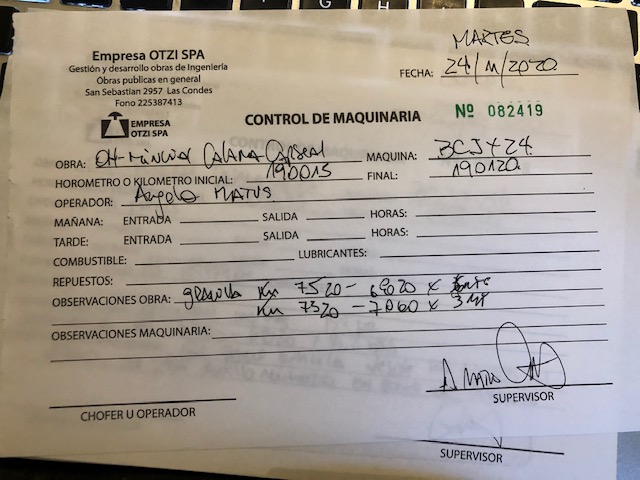 Empresa OTZI SPA
Gestión y desarrollo obras de Ingeniería
Obras publicas en general
San Sebastian 2957, Las Condes
Fono 225387413
MARTES
FECHA: 24/11/2020
EMPRESA
OTZI SPA
CONTROL DE MAQUINARIA
Nº 082419
OBRA: CALAMA MAQUINA: BCJY24
HOROMETRO O KILOMETRO INICIAL: 190015 FINAL: 190120
OPERADOR: MATUS
MAÑANA: ENTRADA SALIDA HORAS:
TARDE: ENTRADA SALIDA HORAS:
COMBUSTIBLE: LUBRICANTES:
REPUESTOS:
OBSERVACIONES OBRA: Km 7520 -
Km 7320 - 7060 x
OBSERVACIONES MAQUINARIA:
CHOFER U OPERADOR
SUPERVISOR
SUPERVISOR